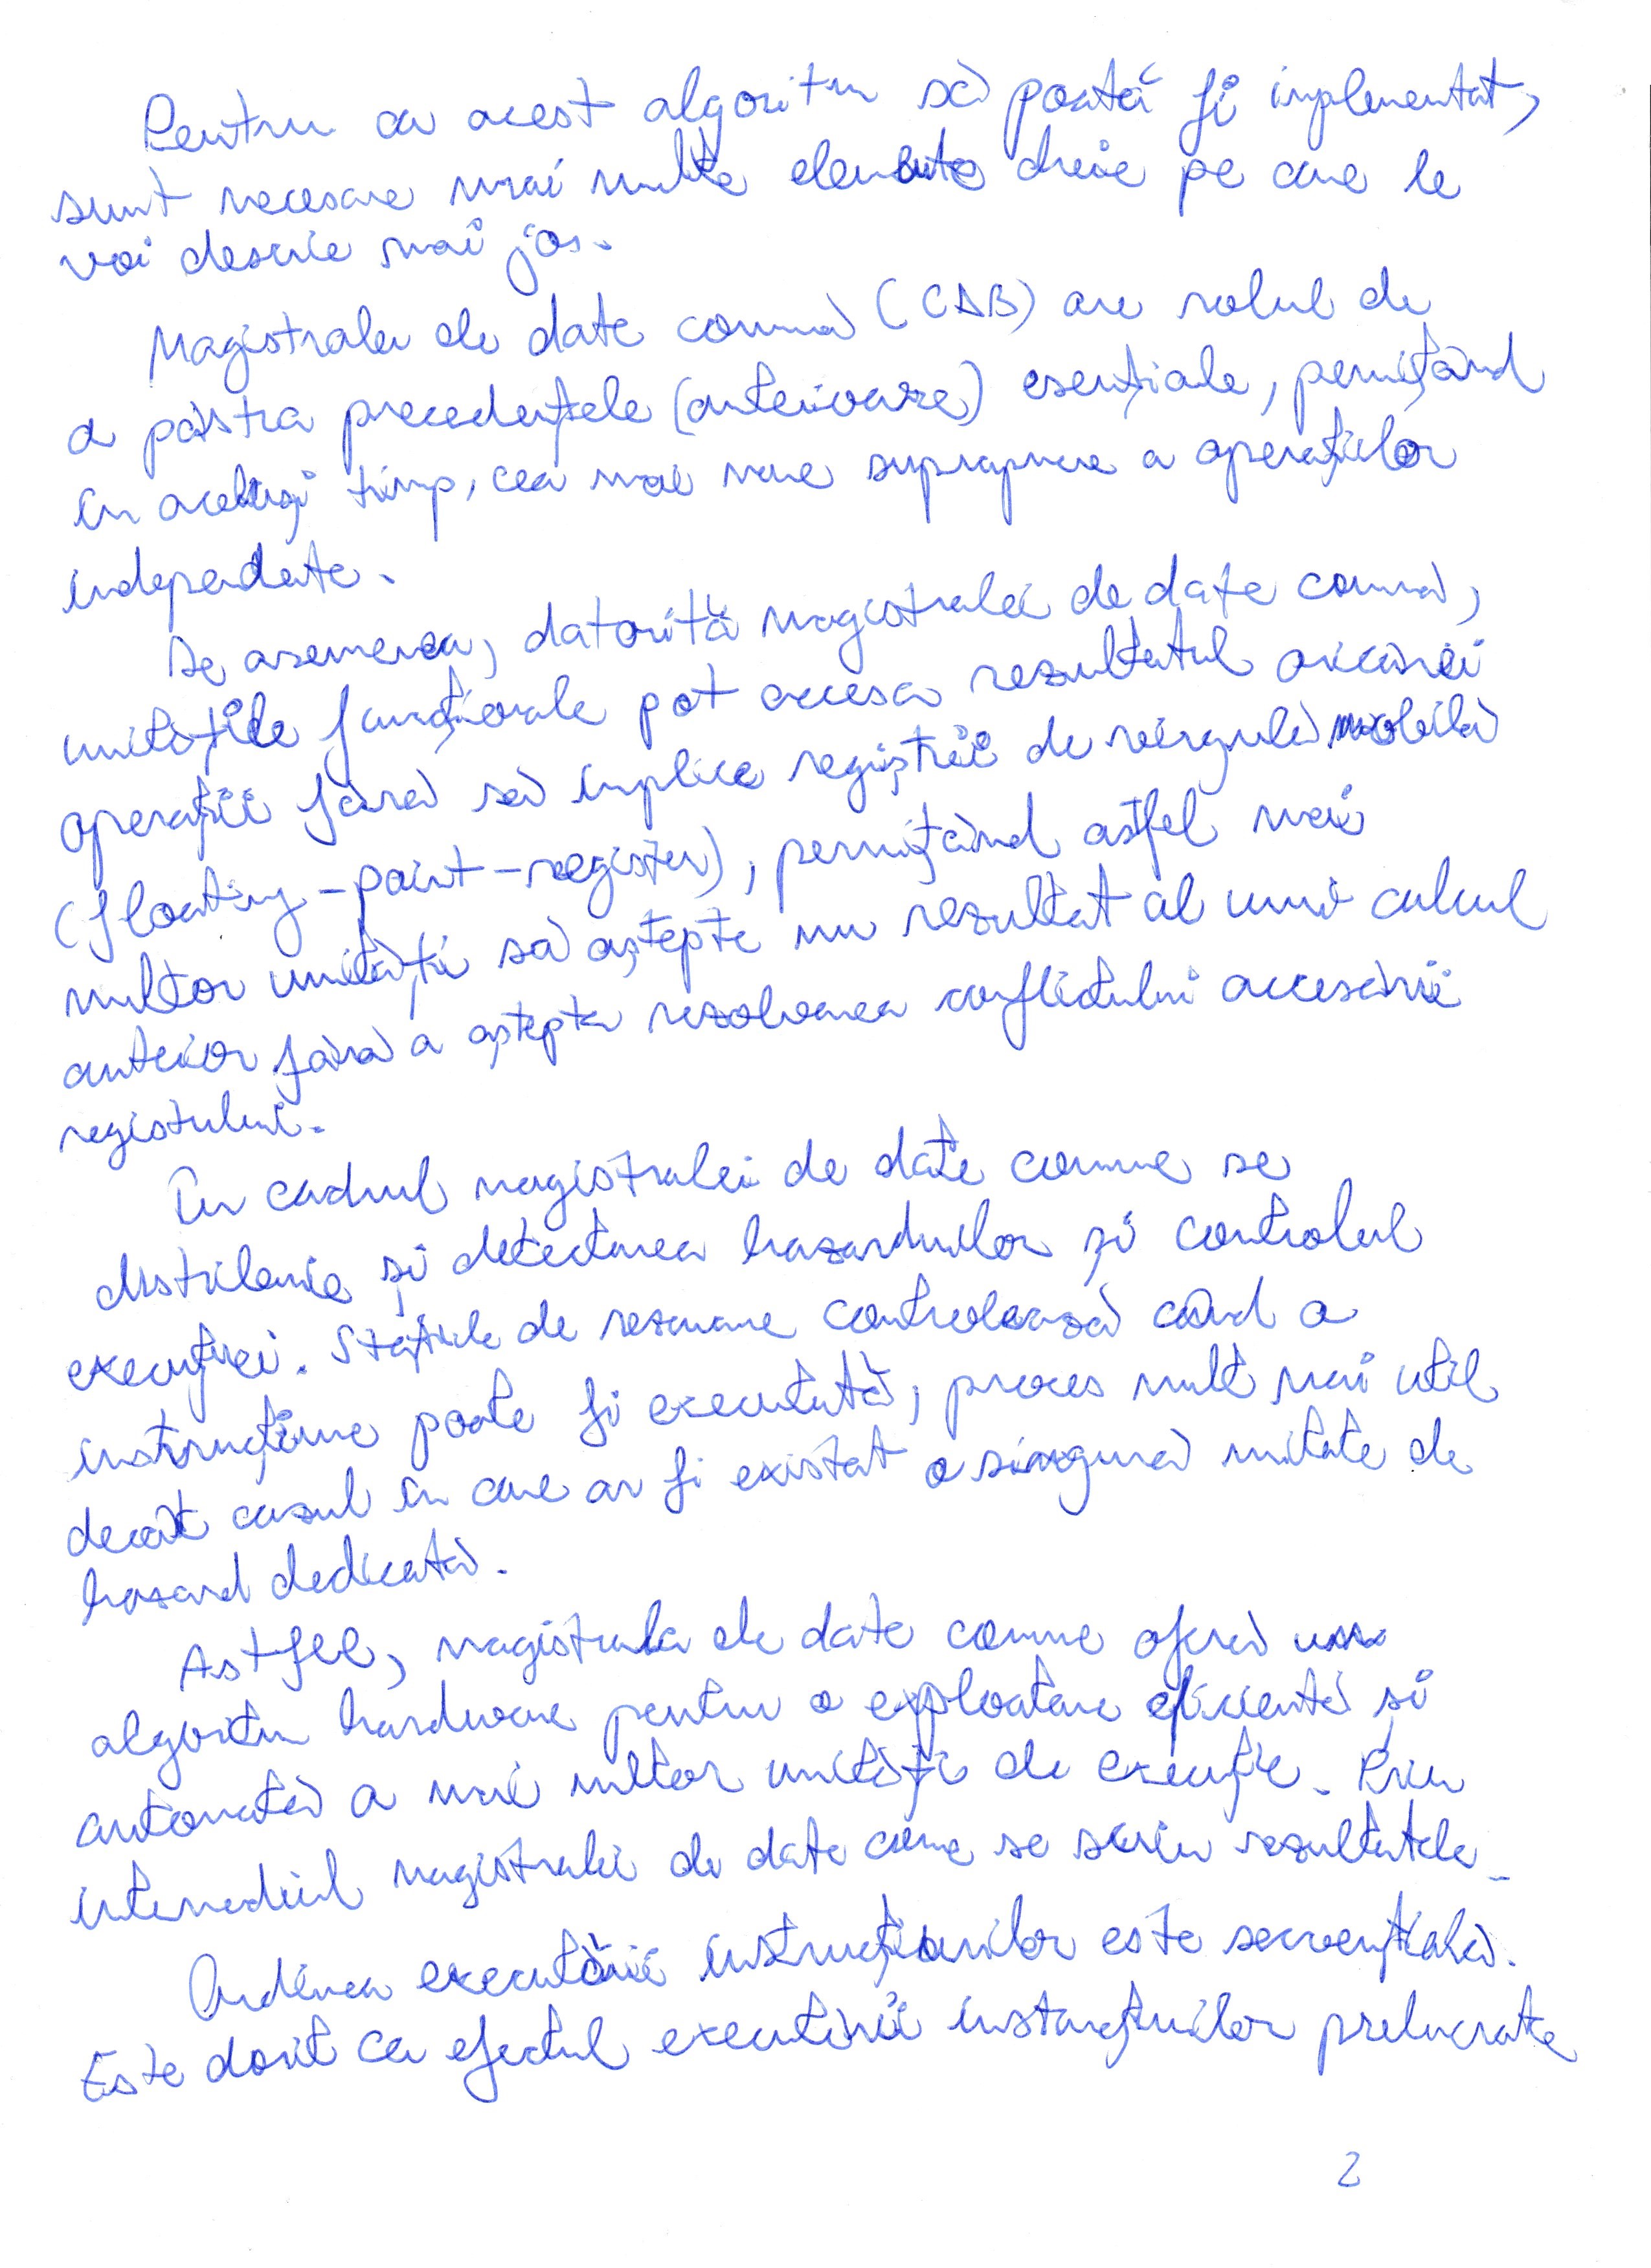 Pentru ca acest algoritm să poată fi implementat,
sunt necesare mai multe elemente cheie pe care le
voi descrie mai jos.
Magistrala de date comună (CDB) are rolul de
a păstra precedențele (anterioare) esențiale, permițând
în același timp, cea mai mare suprapunere a operațiilor
independente.
De asemenea, datorită magistralei de date comună,
unitățile funcționale pot accesa rezultatul oricărei
operații fără să implice regiștrii de virgulă mobilă
(floating-point-register), permițând astfel mai
multor unități să aștepte un rezultat al unui calcul
anterior fără a aștepta rezolvarea conflictului accesării
registrului.
În cadrul magistralei de date comune se
distribuie și detectarea hazardurilor și controlul
execuției. Stațiile de rezervare controlează când o
instrucțiune poate fi executată, proces mult mai util
decât cazul în care ar fi existat o singură unitate de
hazard dedicată.
Astfel, magistrala de date comune oferă un
algoritm hardware pentru o exploatare eficientă și
automată a mai multor unități de execuție. Prin
intermediul magistralei de date comune se scriu rezultatele.
Ordinea executării instrucțiunilor este secvențială.
Este dorit ca efectul executării instrucțiunilor prelucrate
2